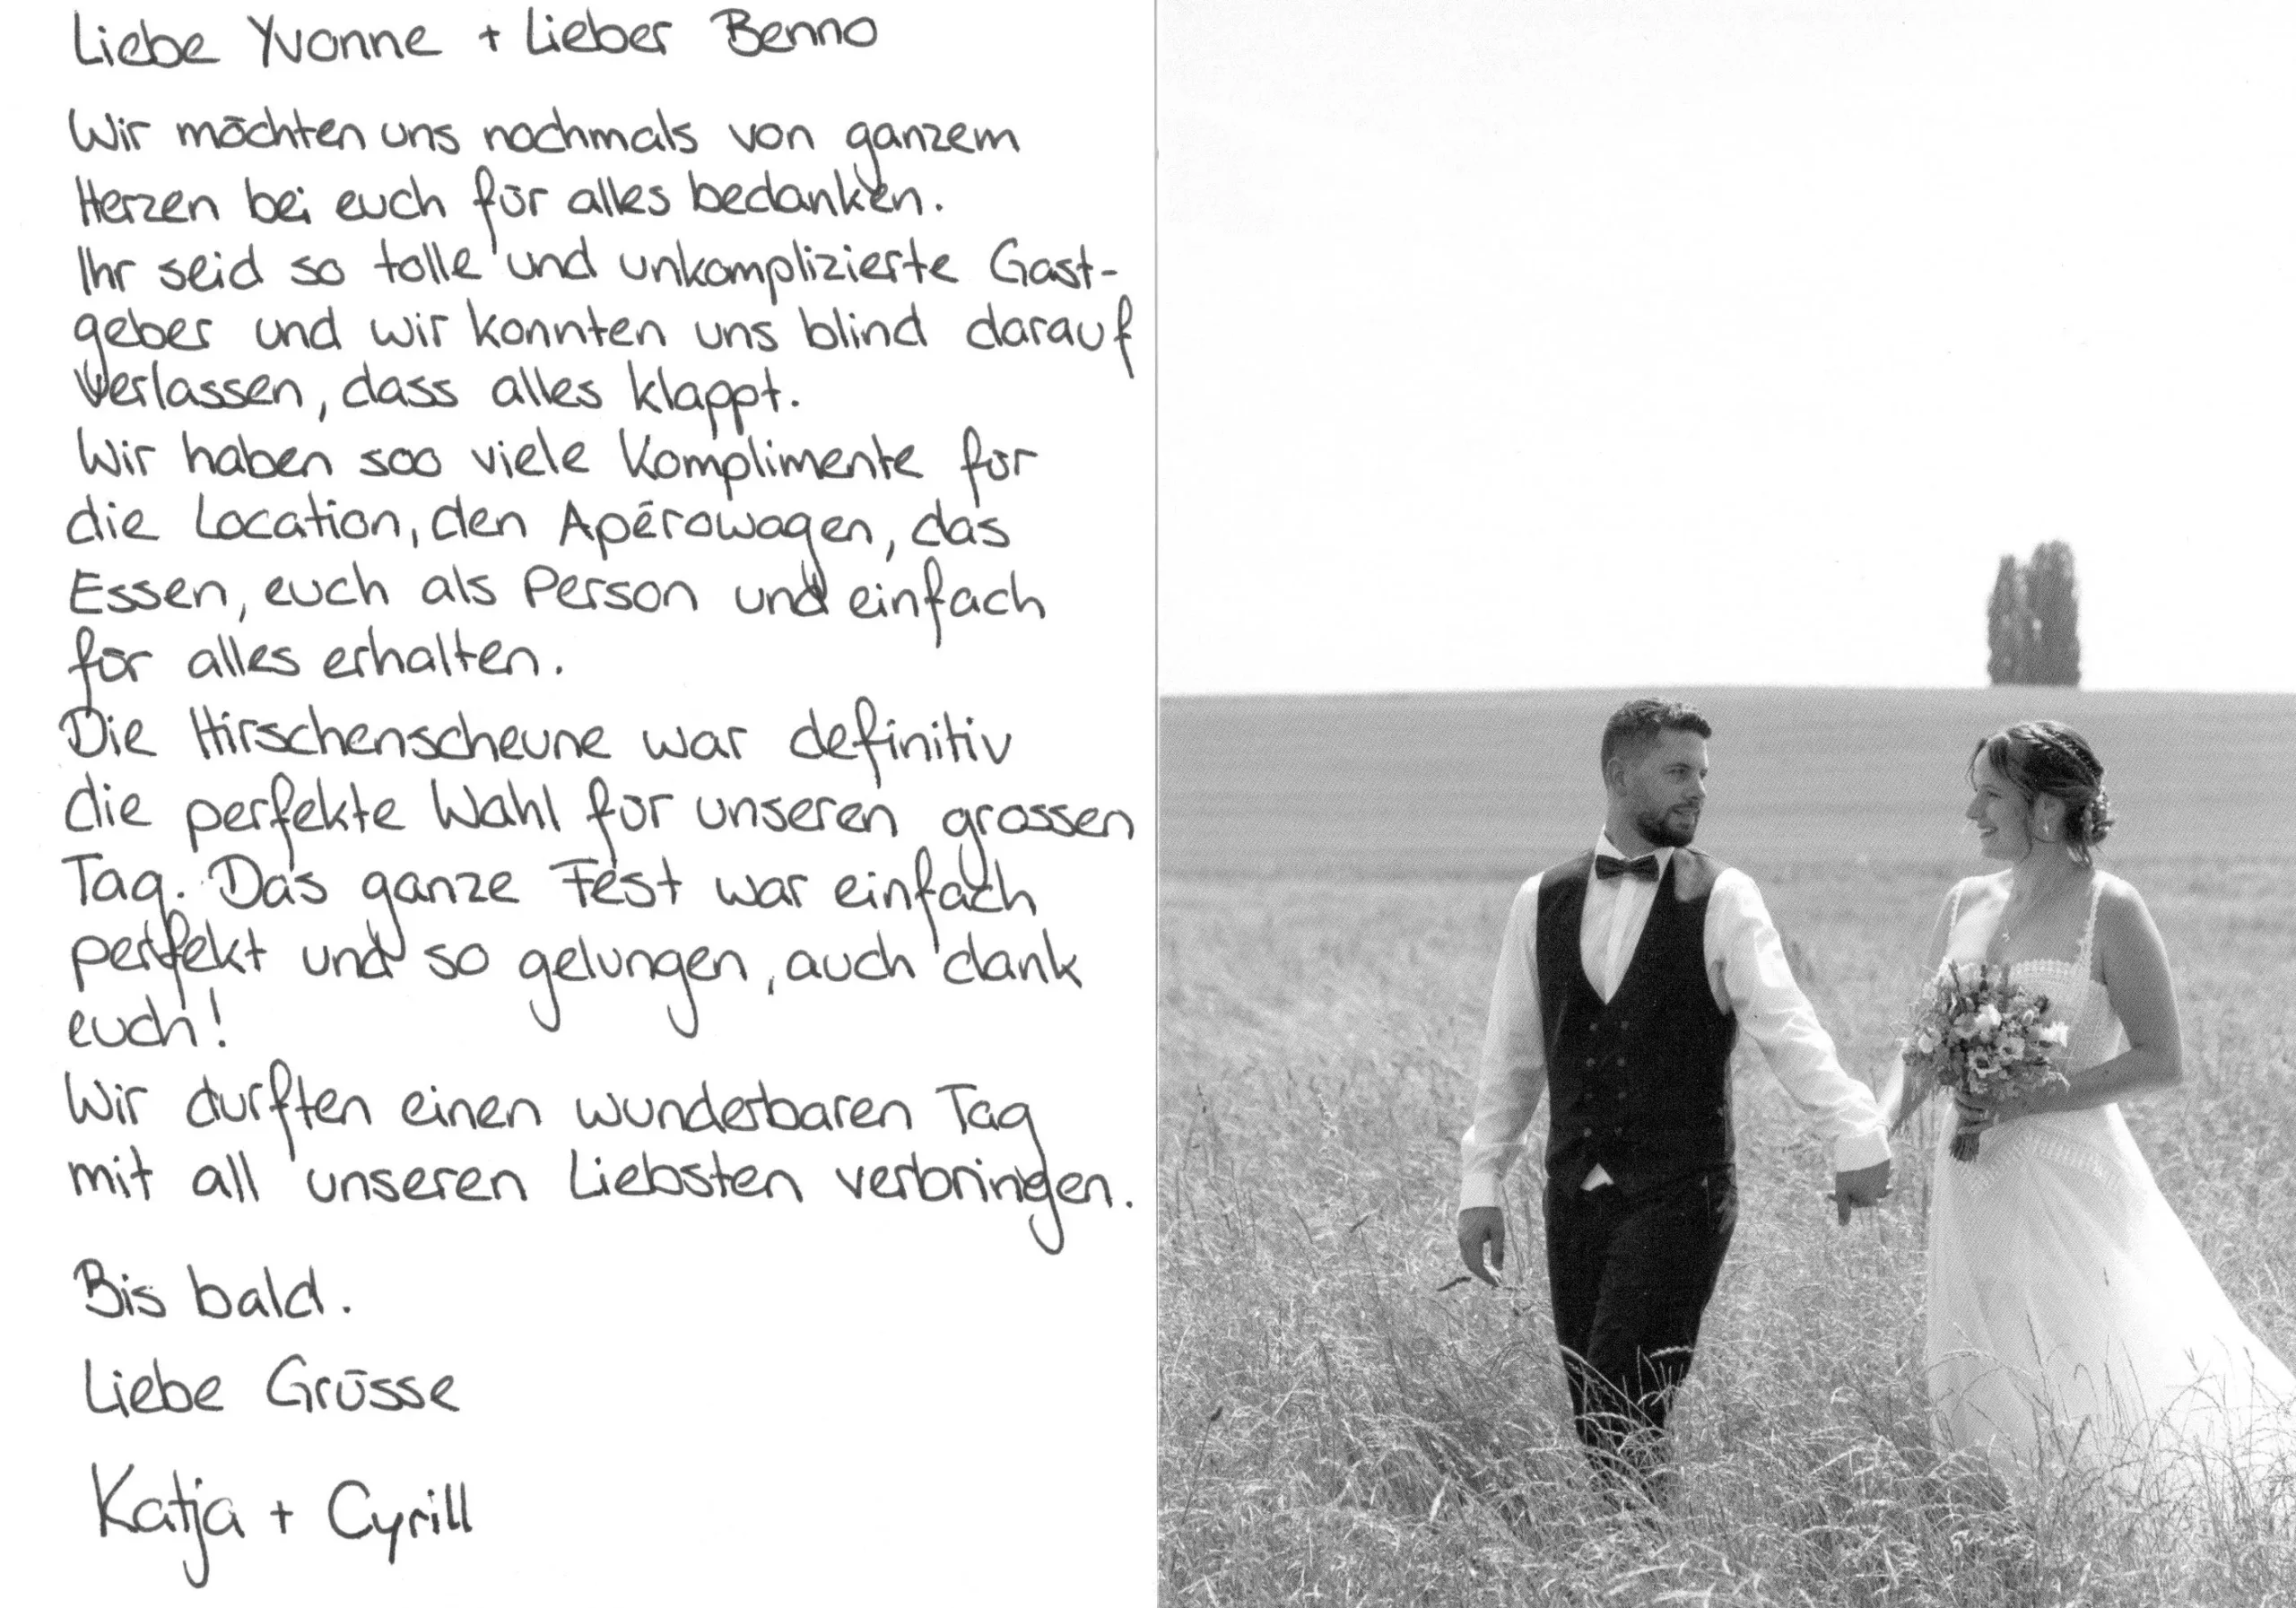 Liebe Yvonne + Lieber Benno
Wir möchten uns nochmals von ganzem
Herzen bei euch für alles bedanken.
Ihr seid so tolle und unkomplizierte Gast-
geber und wir konnten uns blind darauf
verlassen, dass alles klappt.
Wir haben soo viele Komplimente für
die Location, den Apérowagen, das
Essen, euch als Person und einfach
für alles erhalten.
Die Hirschenscheune war definitiv
die perfekte Wahl für unseren grossen
Tag. Das ganze Fest war einfach
perfekt und so gelungen, auch dank
euch!
Wir durften einen wunderbaren Tag
mit all unseren Liebsten verbringen.
Bis bald.
Liebe Grüsse
Katja + Cyrill